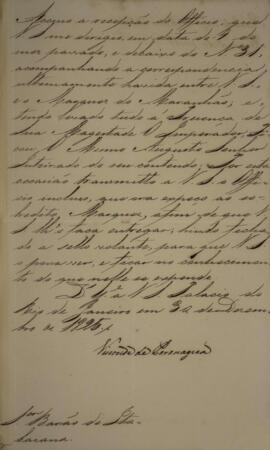 Accuso a recepção do Officio, que
V. S. me dirigio, em data de 9 do
mez passado, e debaixo do Nº 31,
acompanhando a correspondencia
ultimamente havida entre V. S.
e o Marquez do Maranhão; e
tendo levado tudo a Presença de
Sua Magestade O Imperador, Fi-
cou O Mesmo Augusto Senhor
Inteirado de seu contendo; Por esta
occasião transmitto a V. S. o Offi-
cio incluso, que ora expeço ao so-
bredito Marquez, afim de que V.
S. lh'o faça entregar; hindo fecha-
do a sello volante, para que V. S.
o possa ver, e ficar no conhecimen-
to do que nelle se expende.
D.s G.e a V. S. Palacio do
Rio de Janeiro em 30 de Dezem-
bro de 1825.
Visconde de Paranaguá
Snr. Barão de Ita-
baiana.